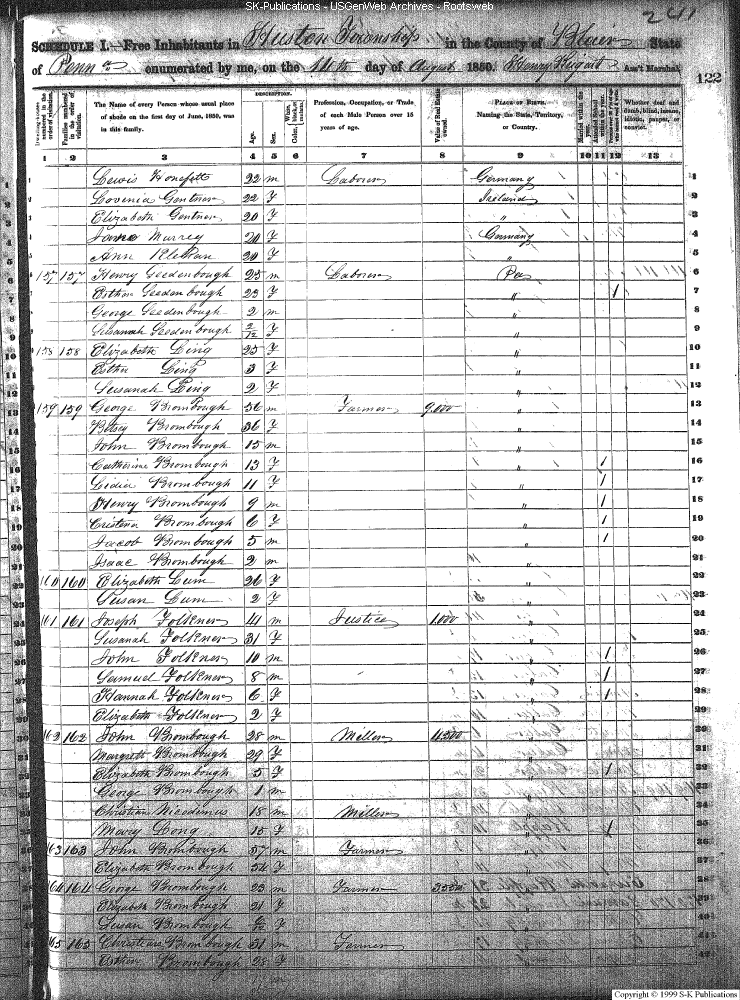 SK-Publications - USGenWeb Archives - Rootsweb
241
SCHEDULE I.—Free Inhabitants in Huston Township in the County of Blair State
of Penna enumerated by me, on the 14th day of August 1850. Henry Ass't Marshal.
122
DESCRIPTION.
Dwelling-houses numbered in the order of visitation.
Families numbered in the order of visitation.
The Name of every Person whose usual place of abode on the first day of June, 1850, was in this family.
Age.
Sex.
White, black, or mulatto.
Color,
Profession, Occupation, or Trade of each Male Person over 15 years of age.
Value of Real Estate owned.
PLACE OF BIRTH. Naming the State, Territory, or Country.
Married within the year.
Attended School within the year.
Whether deaf and dumb, blind, insane, idiotic, pauper, or convict.
1 2 3 4 5 6 7 8 9 10 11 12 13
1 Lewis 22 m Laborer Germany 1
2 Lovenia Gentner 22 F Ireland 2
3 Elizabeth Gentner 20 F " 3
4 Jane Murrey 20 F Germany 4
5 Ann 20 F " 5
6 157 157 Henry Geedenbough 25 m Laborer Pa 6
7 Esther Geedenbough 23 F " 1 7
8 George Geedenbough 2 m " 8
9 Susanah Geedenbough 2/12 F " 9
10 158 158 Elizabeth Ling 25 F " 10
11 Esther Ling 3 F " 11
12 Susanah Ling 2 F " 12
13 159 159 George Brombough 36 m Farmer 9,000 " 13
14 Betsy Brombough 36 F " 14
15 John Brombough 15 m " 15
16 Catherine Brombough 13 F " 1 16
17 Lidia Brombough 11 F " 1 17
18 Henry Brombough 9 m " 1 18
19 Cristena Brombough 6 F " 1 19
20 Jacob Brombough 5 m " 1 20
21 Isaac Brombough 2 m " 21
22 160 160 Elizabeth Lum 26 F " 22
23 Susan Lum 2 F " 23
24 161 161 Joseph Folkner 41 m Justice 1,000 " 24
25 Susanah Folkner 31 F " 25
26 John Folkner 10 m " 1 26
27 Samuel Folkner 8 m " 1 27
28 Hannah Folkner 6 F " 1 28
29 Elizabeth Folkner 2 F " 29
30 162 162 John Brombough 28 m Miller 4,500 " 30
31 Margreth Brombough 29 F " 31
32 Elizabeth Brombough 5 F " 1 32
33 George Brombough 1 m " 33
34 Christian Nicodemus 18 m Miller " 34
35 Mary Long 15 F " 1 35
36 163 163 John Brombough 57 m Farmer " 36
37 Elizabeth Brombough 54 F " 37
38 164 164 George Brombough 23 m Farmer " 38
39 Elizabeth Brombough 21 F " 39
40 Susan Brombough F " 40
41 165 165 Christian Brombough 31 m Farmer " 41
42 Esther Brombough 28 F " 42
Copyright © 1999 S-K Publications